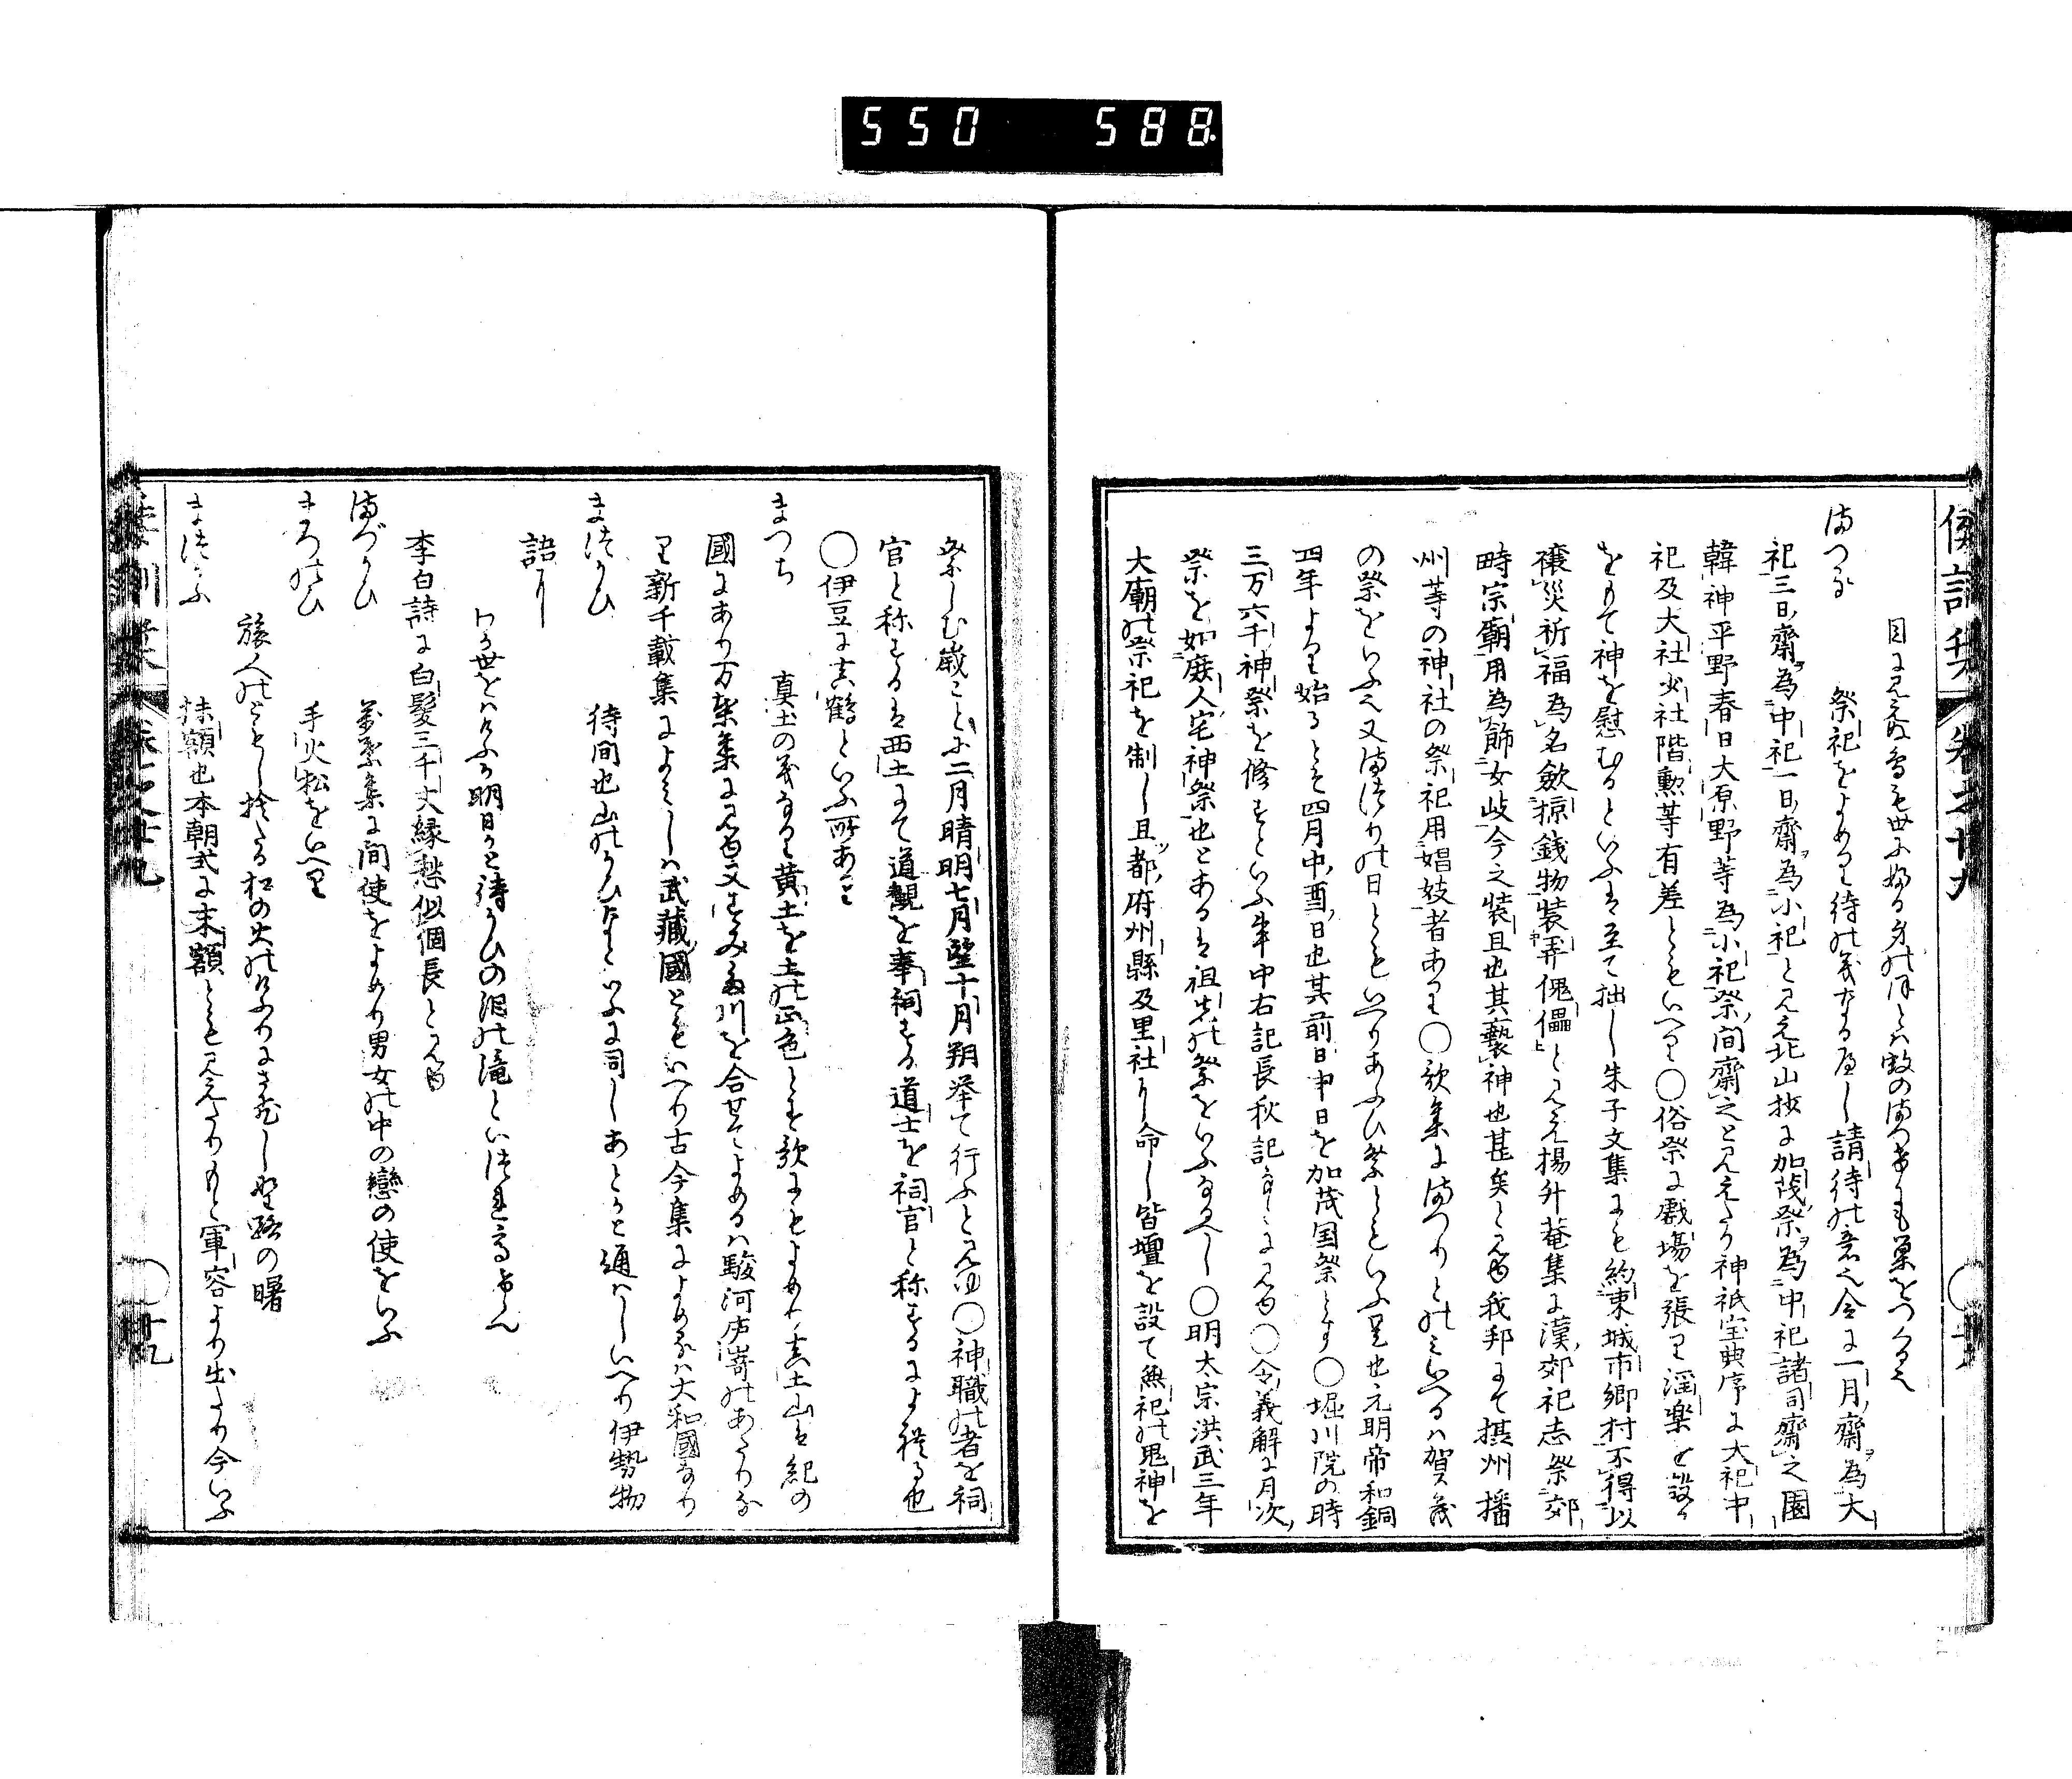 550 588
倭訓栞 巻之廿九
目に見えぬ鳥も世にふる身のほとは蚊のまつけにも巣をつくる也
まつる 祭祀をよめり待の義なるへし請待の意也令に一月齋為大
祀三日齋為中祀一日齋為小祀と見え北山抄に加茂祭為中祀諸司齋之園
韓神平野春日大原野等為小祀祭間齋之と見えたり神祇宝典序に大祀中
祀及大社少社階勲等有差ともいへり〇俗祭に戯場を張り淫楽を設け
をもて神を慰むるといふは至て拙し朱子文集にも約束城市郷村不得以
禳災祈福為名斂掠銭物装弄傀儡と見え揚升菴集に漢郊祀志祭郊
時宗廟用為飾女岐今之装且也其褻神也甚矣と見ゆ我邦にて摂州播
州等の神社の祭祀用娼妓者あり〇歌集にまつりとのみいへるは賀茂
の祭をいふ也又まつりの日ともいへりあふひ祭ともいふ是也元明帝和銅
四年より始るとそ四月中酉日也其前日申日を加茂国祭とす〇堀川院の時
三万六千神祭を修すといふ事中右記長秋記なとに見ゆ〇令義解に月次
祭を如庶人宅神祭也とあるは祖先の祭をいふなるへし〇明太宗洪武三年
大廟の祭祀を制し且都府州縣及里社に命し皆壇を設て無祀の鬼神を
祭しむ歳ことに二月晴明七月望十月朔挙て行ふと見ゆ〇神職の者を祠
官と称するは西土にて道観を奉祠する道士を祠官と称するによれる也
〇伊豆に真鶴といふ所あり
まつち 真土の義なり黄土を土の正色とす歌にもよめり真土山は紀の
國にあり万葉集に見ゆ又すみた川を合せてよめるは駿河庐崎のあたりな
り新千載集によみしは武藏國ともいへり古今集によめるは大和國なり
まつかひ 待間也山のかひなといふに同しあとかと通はしいへり伊勢物
語に
わか世をはけふか明日かと待かひの泪の滝といつれ高けん
李白詩に白髪三千丈縁愁似個長と見ゆ
まづかひ 万葉集に間使をよめり男女の中の戀の使をいふ
まつのひ 手火松をいへり
旅人のともし捨たる松の火のけふりさひし野路の曙
まつかふ 抹額也本朝式に末額とも見えたりもと軍容より出たり今いふ
倭訓栞 巻之廿九